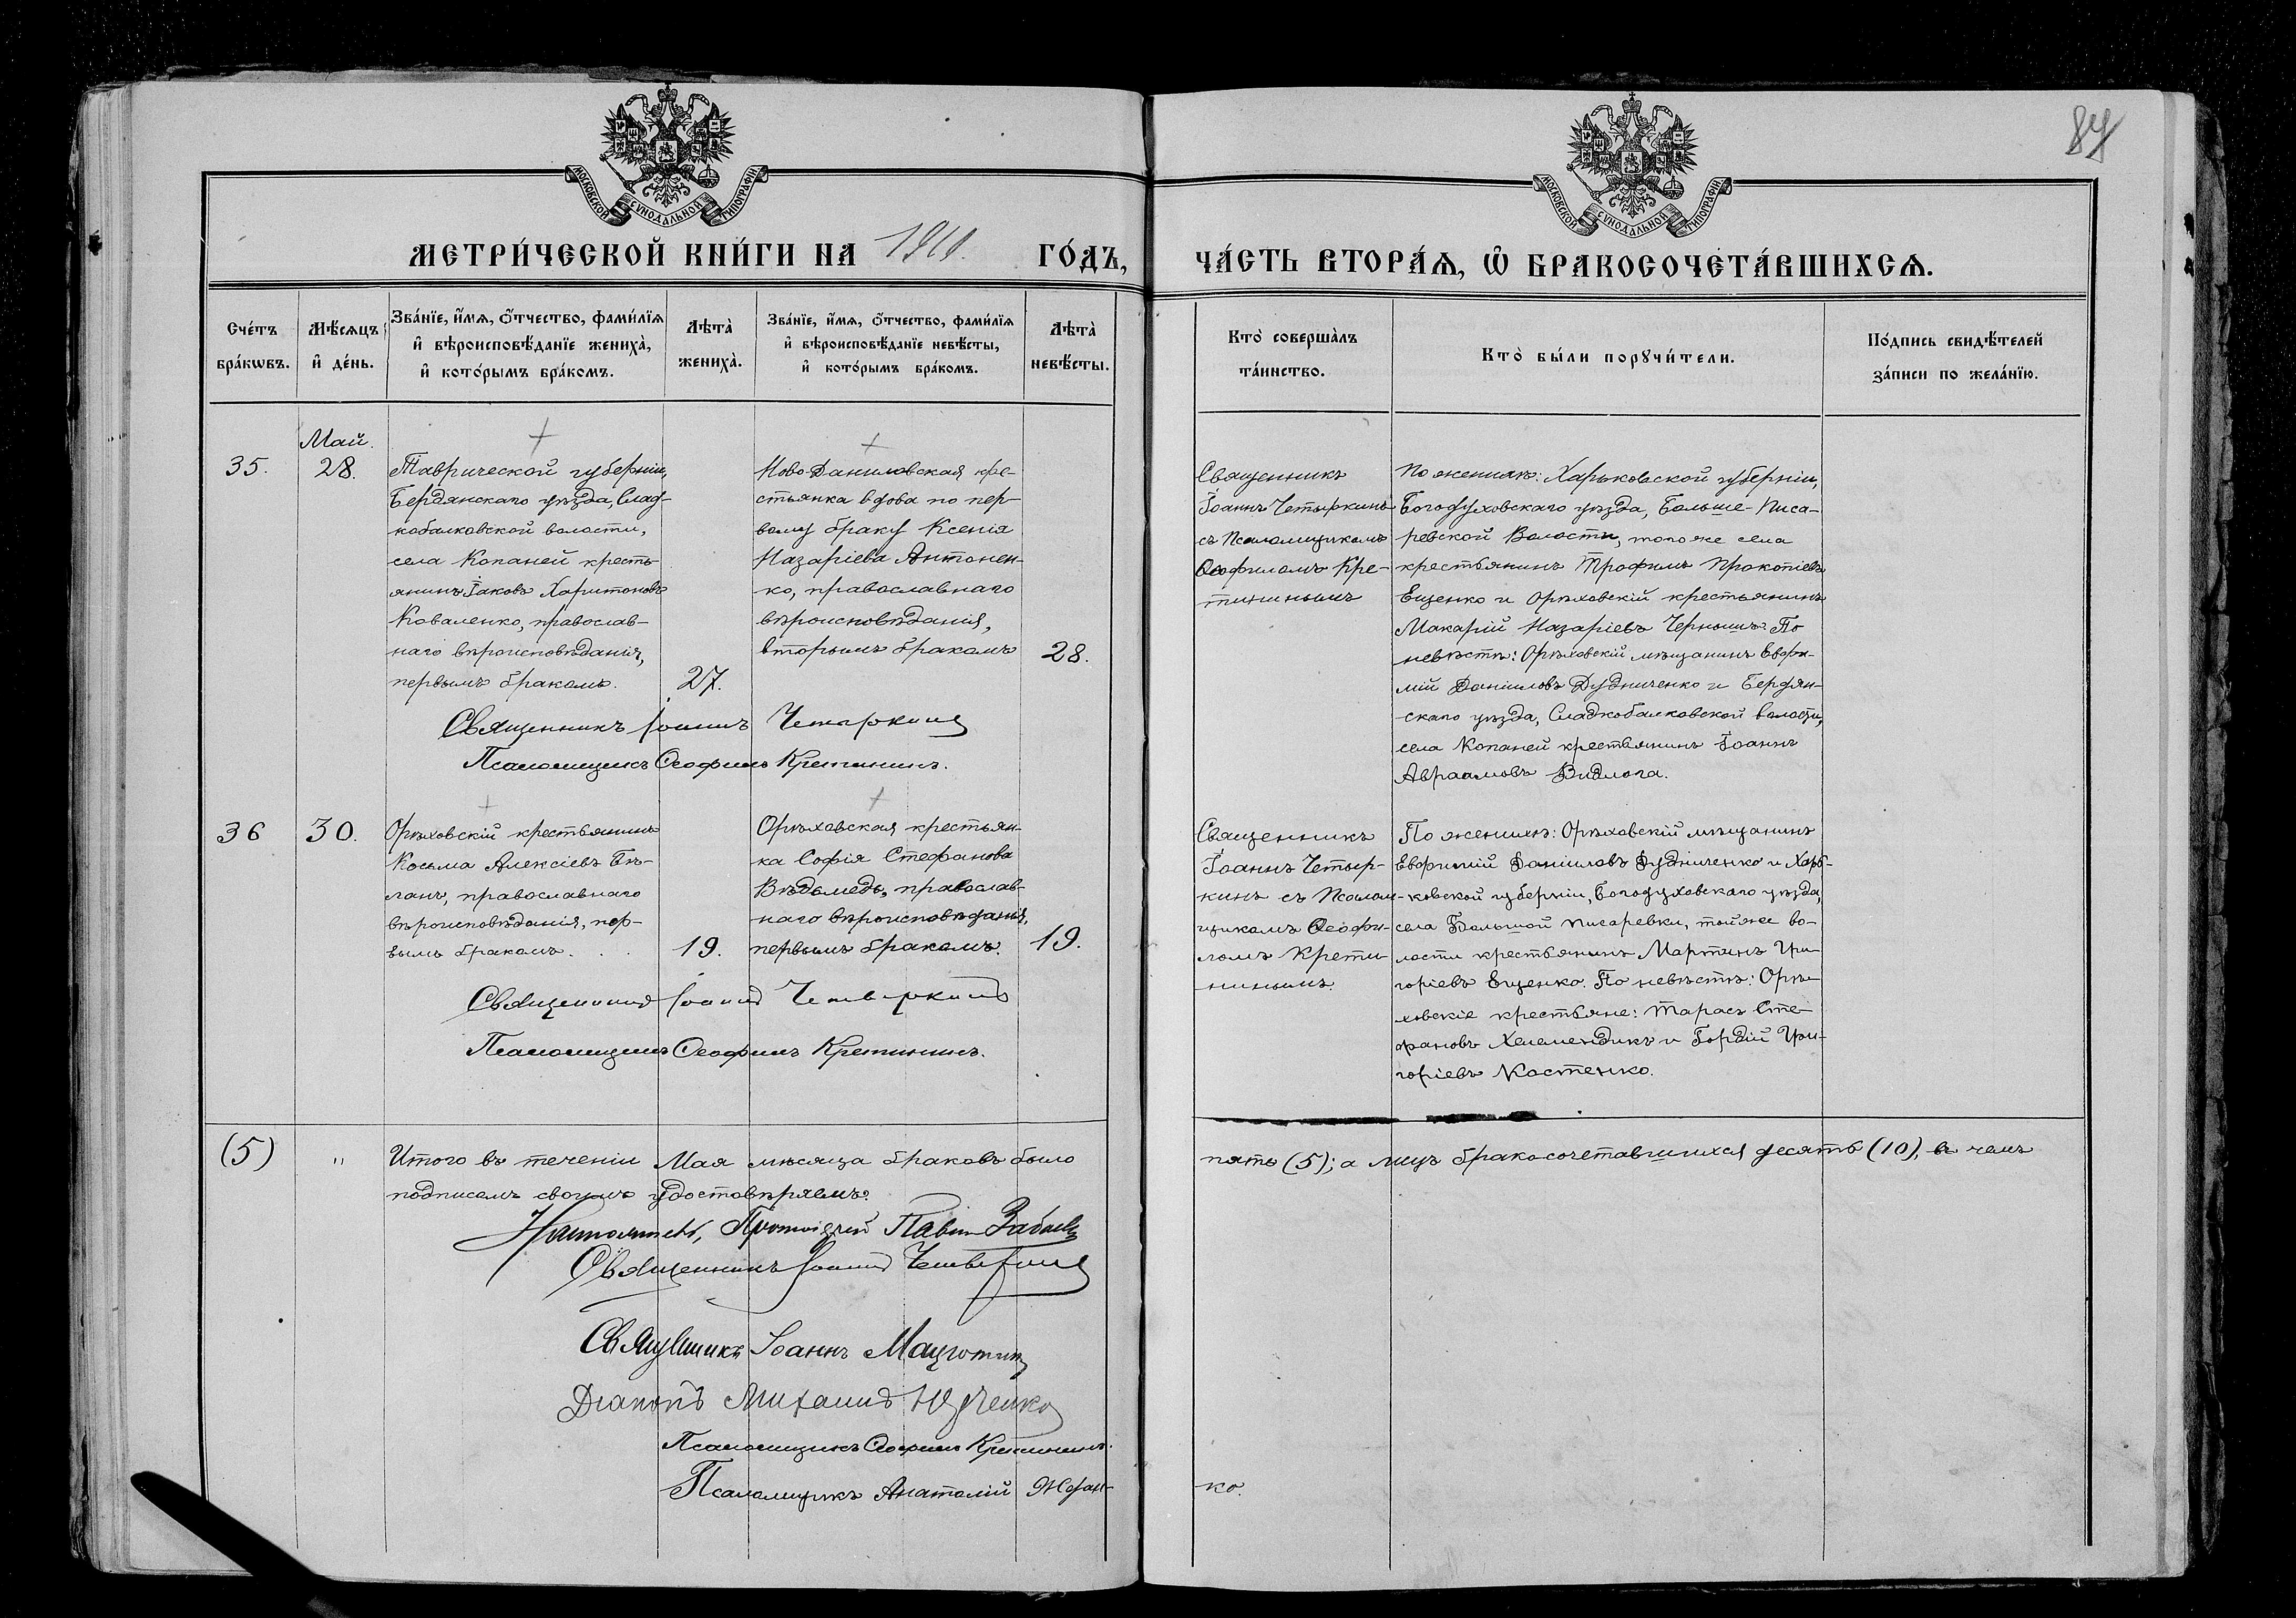 84
МОСКОВСКОЙ СѴНОДАЛЬНОЙ ТИПОГРАФІИ
МОСКОВСКОЙ СѴНОДАЛЬНОЙ ТИПОГРАФІИ
МЕТРИ́ЧЕСКОЙ КНИ́ГИ НА 1910. ГО́ДЪ,
ЧА́СТЬ ВТОРА́Ѧ, Ѽ БРАКОСОЧЕТА́ВШИХСѦ.
Сче́тъ
бра́кѡвъ.
Мѣ́сѧцъ
и҆ де́нь.
Зва́нїе, и҆́мѧ, ѻ҆́тчество, фами́лїѧ
и҆ вѣроисповѣ́данїе жениха̀,
и҆ кото́рымъ бра́комъ.
Лѣта̀
жениха̀.
Зва́нїе, и҆́мѧ, ѻ҆́тчество, фами́лїѧ
и҆ вѣроисповѣ́данїе невѣ́сты,
и҆ кото́рымъ бра́комъ.
Лѣта̀
невѣ́сты.
Кто̀ соверша́лъ
та́инство.
Кто̀ бы́ли порꙋчи́тели.
По́дпись свидѣ́телей
за́писи по жела́нїю.
35.
Май.
28.
Таврической губерніи,
Бердянскаго уѣзда, Слад-
кобалковской волости,
села Копаней кресть-
янинъ Іаковъ Харитоновъ
Коваленко, православ-
наго вѣроисповѣданія,
первымъ бракомъ.
27.
Ново-Даниловская кре-
стьянка вдова по пер-
вому браку Ксенія
Назаріева Антонен-
ко, православнаго
вѣроисповѣданія,
вторымъ бракомъ
28.
Священникъ Іоаннъ Четыркинъ
Псаломщикъ Ѳеофилъ Кретининъ.
Священникъ
Іоаннъ Четыркинъ
съ Псаломщикомъ
Ѳеофиломъ Кре-
тининымъ
По женихѣ: Харьковской губерніи,
Богодуховскаго уѣзда, Больше-Писа-
ревской Волости, того же села
крестьянинъ Трофимъ Прокопіевъ
Ещенко и Орѣховскій крестьянинъ
Макарій Назаріевъ Чернышъ. По
невѣстѣ: Орѣховскій мѣщанинъ Евфи-
мій Даніиловъ Дудниченко и Бердян-
скаго уѣзда, Сладкобалковской волости,
села Копаней крестьянинъ Іоаннъ
Авраамовъ Видлога.
36
30.
Орѣховскій крестьянинъ
Косьма Алексіевъ Бѣ-
ланъ, православнаго
вѣроисповѣданія, пер-
вымъ бракомъ.
19.
Орѣховская крестьян-
ка Софія Стефанова
православ-
наго вѣроисповѣданія,
первымъ бракомъ.
19.
Священникъ Іоаннъ Четыркинъ
Псаломщикъ Ѳеофилъ Кретининъ.
Священникъ
Іоаннъ Четыр-
кинъ съ Псалом-
щикомъ Ѳеофи-
ломъ Крети-
нинымъ
По женихѣ: Орѣховскій мѣщанинъ
Евфимій Даніиловъ Дудниченко и Харь-
ковской губерніи, Богодуховскаго уѣзда,
села Большой Писаревки, той же во-
лости крестьянинъ Мартинъ Гри-
горіевъ Ещенко. По невѣстѣ: Орѣ-
ховскіе крестьяне: Тарасъ Сте-
фановъ Хелемендикъ и Гордій Гри-
горіевъ Костенко.
(5)
"
Итого въ теченіи Мая мѣсяца браковъ было пять (5); а лицъ бракосочетавшихся десять (10), въ чемъ
подписомъ своимъ удостовѣряемъ:
Настоятель, Протоіерей
Священникъ Іоаннъ Четыркинъ
Священникъ Іоаннъ
Діаконъ Михаилъ
Псаломщикъ Ѳеофилъ Кретининъ.
Псаломщикъ Анатолій
ко.